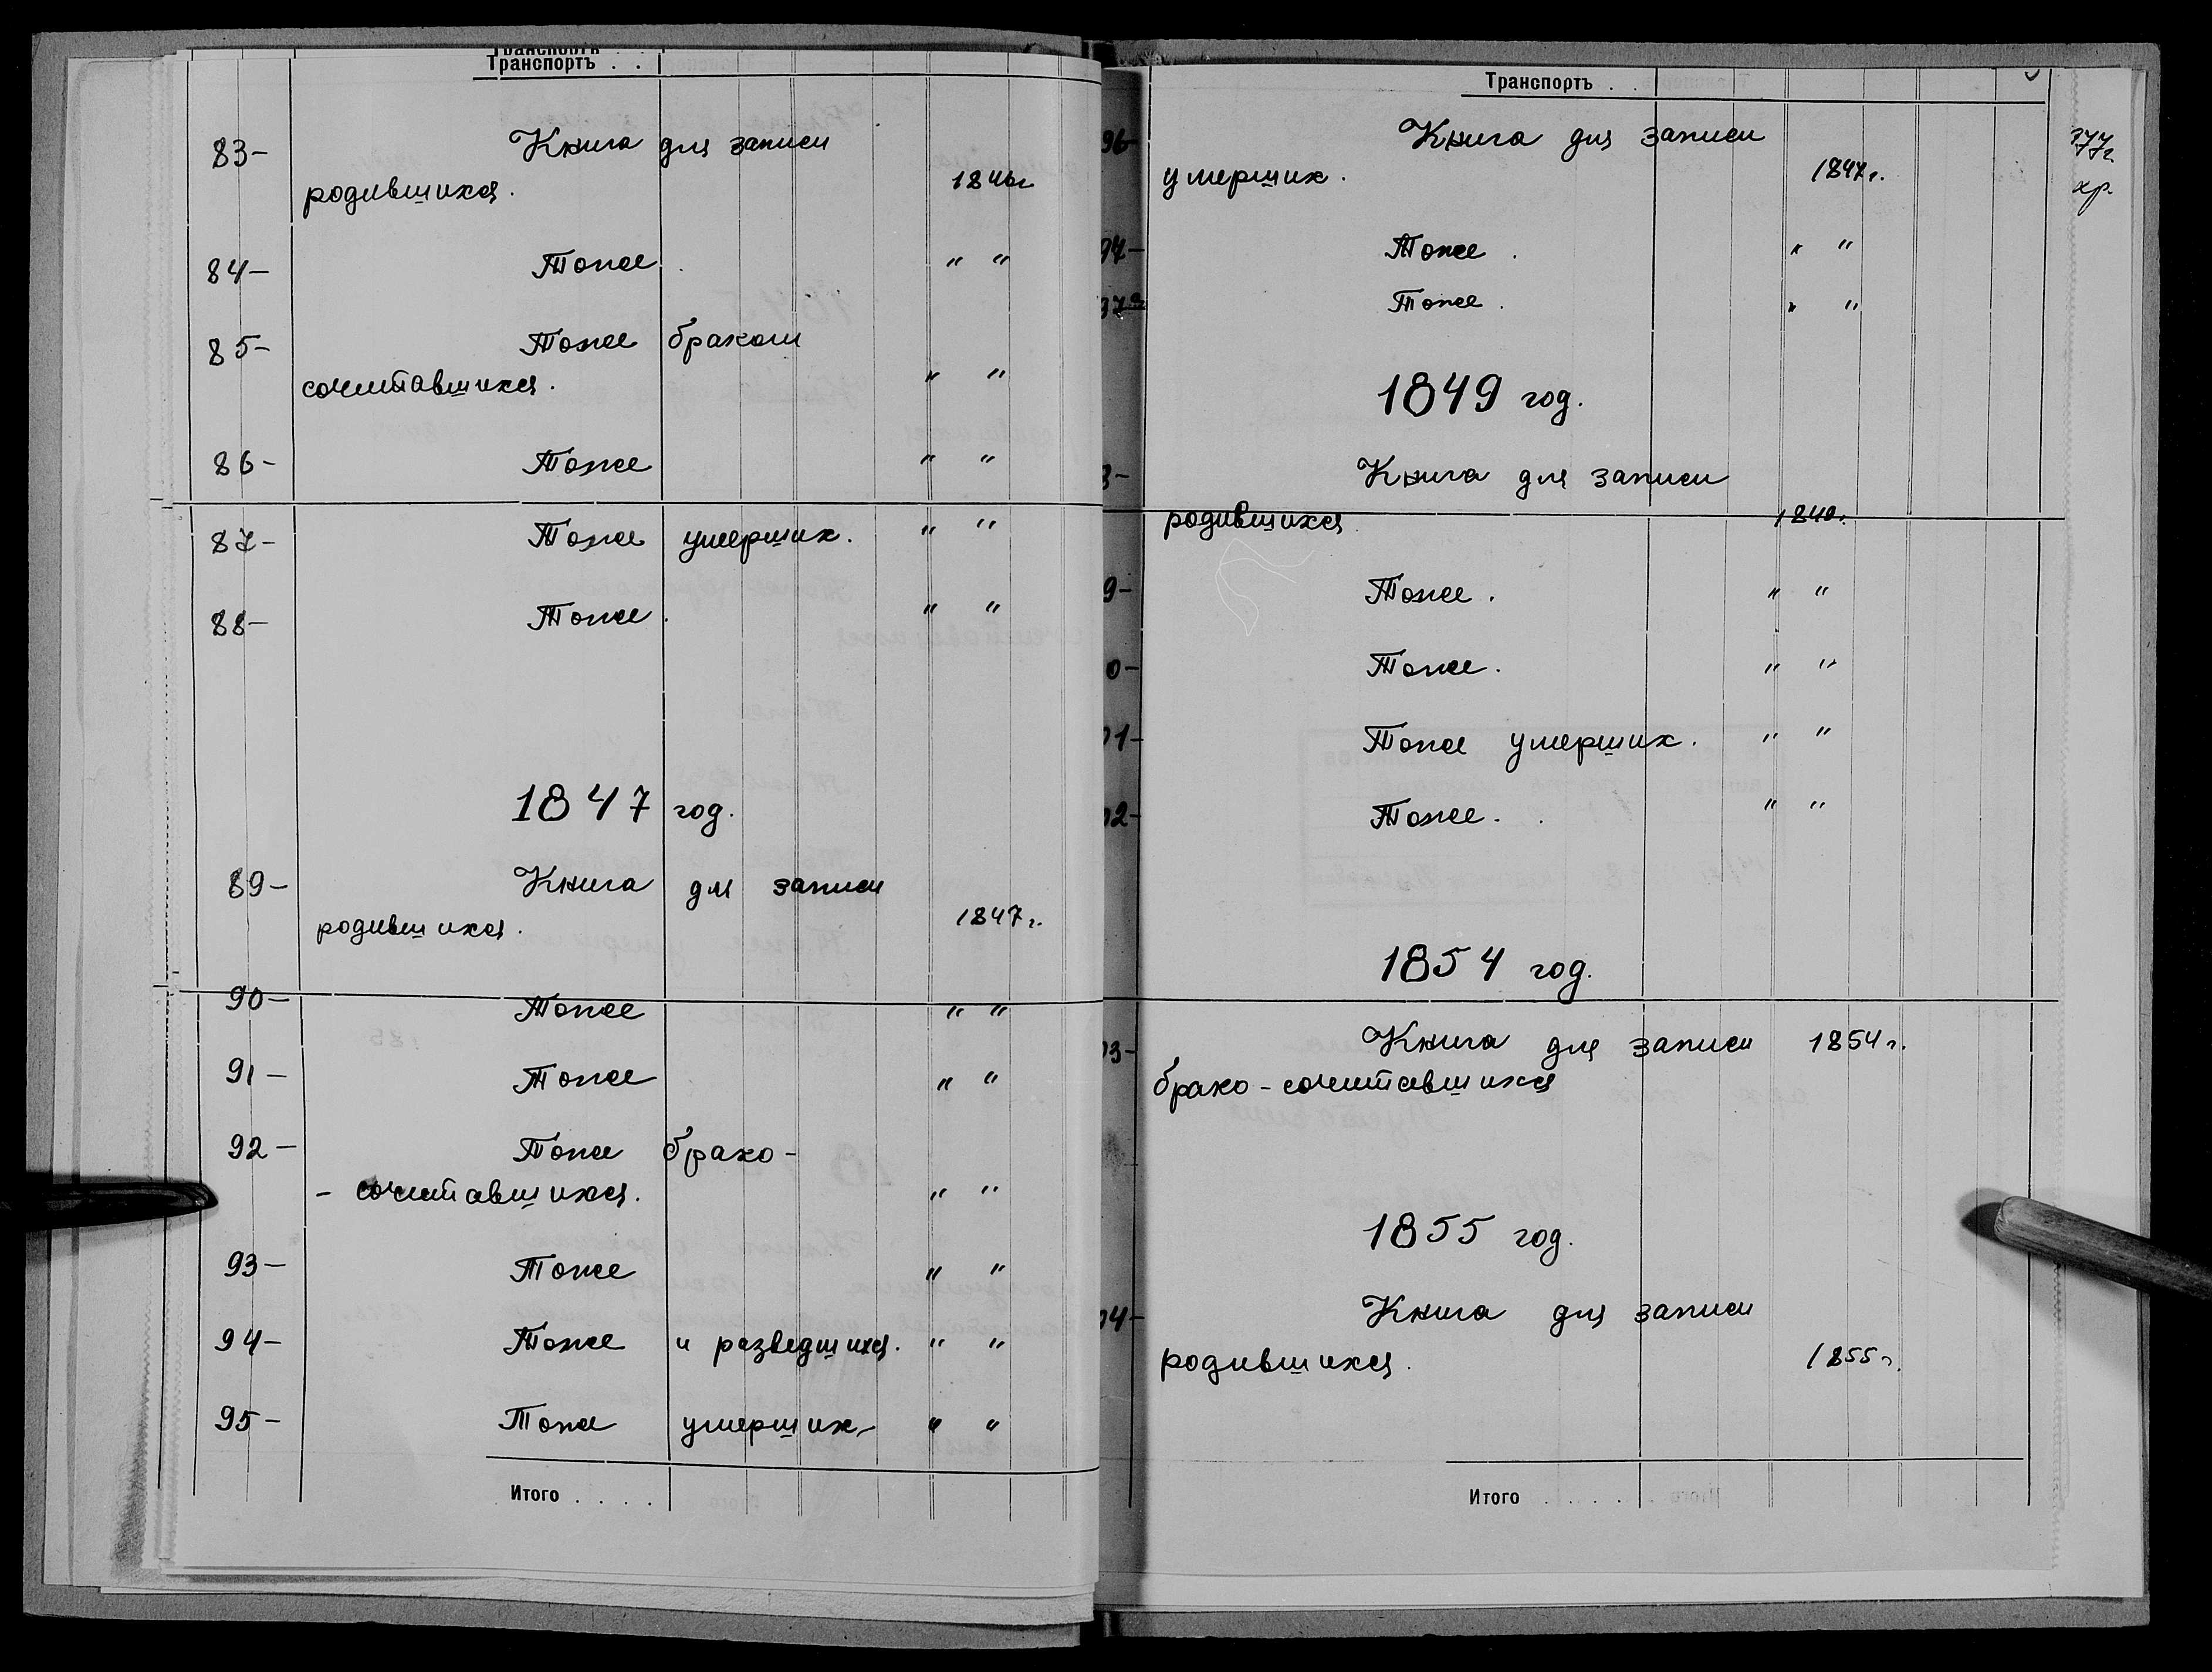 Транспортъ . .
83- Книга для записи
родившихся. 1846г
84- Тоже . " "
85- Тоже браком
сочетавшихся. " "
86- Тоже " "
87- Тоже умерших. " "
88- Тоже. " "
1847 год.
89- Книга для записи
родившихся. 1847г.
90- Тоже " "
91- Тоже " "
92- Тоже брако-
- сочетавшихся. " "
93- Тоже " "
94- Тоже и разведшихся. " "
95- Тоже умерших- " "
Итого . . . .
Транспортъ . .
96- Книга для записи
умерших. 1847г.
97- Тоже . " "
97а Тоже . " "
1849 год.
8- Книга для записи
родившихся 1849г.
9- Тоже . " "
0- Тоже. " "
01- Тоже умерших. " "
02- Тоже. . " "
1854 год.
03- Книга для записи 1854г.
брако-сочетавшихся
1855 год.
04- Книга для записи
родившихся. 1855г.
Итого . . . . .